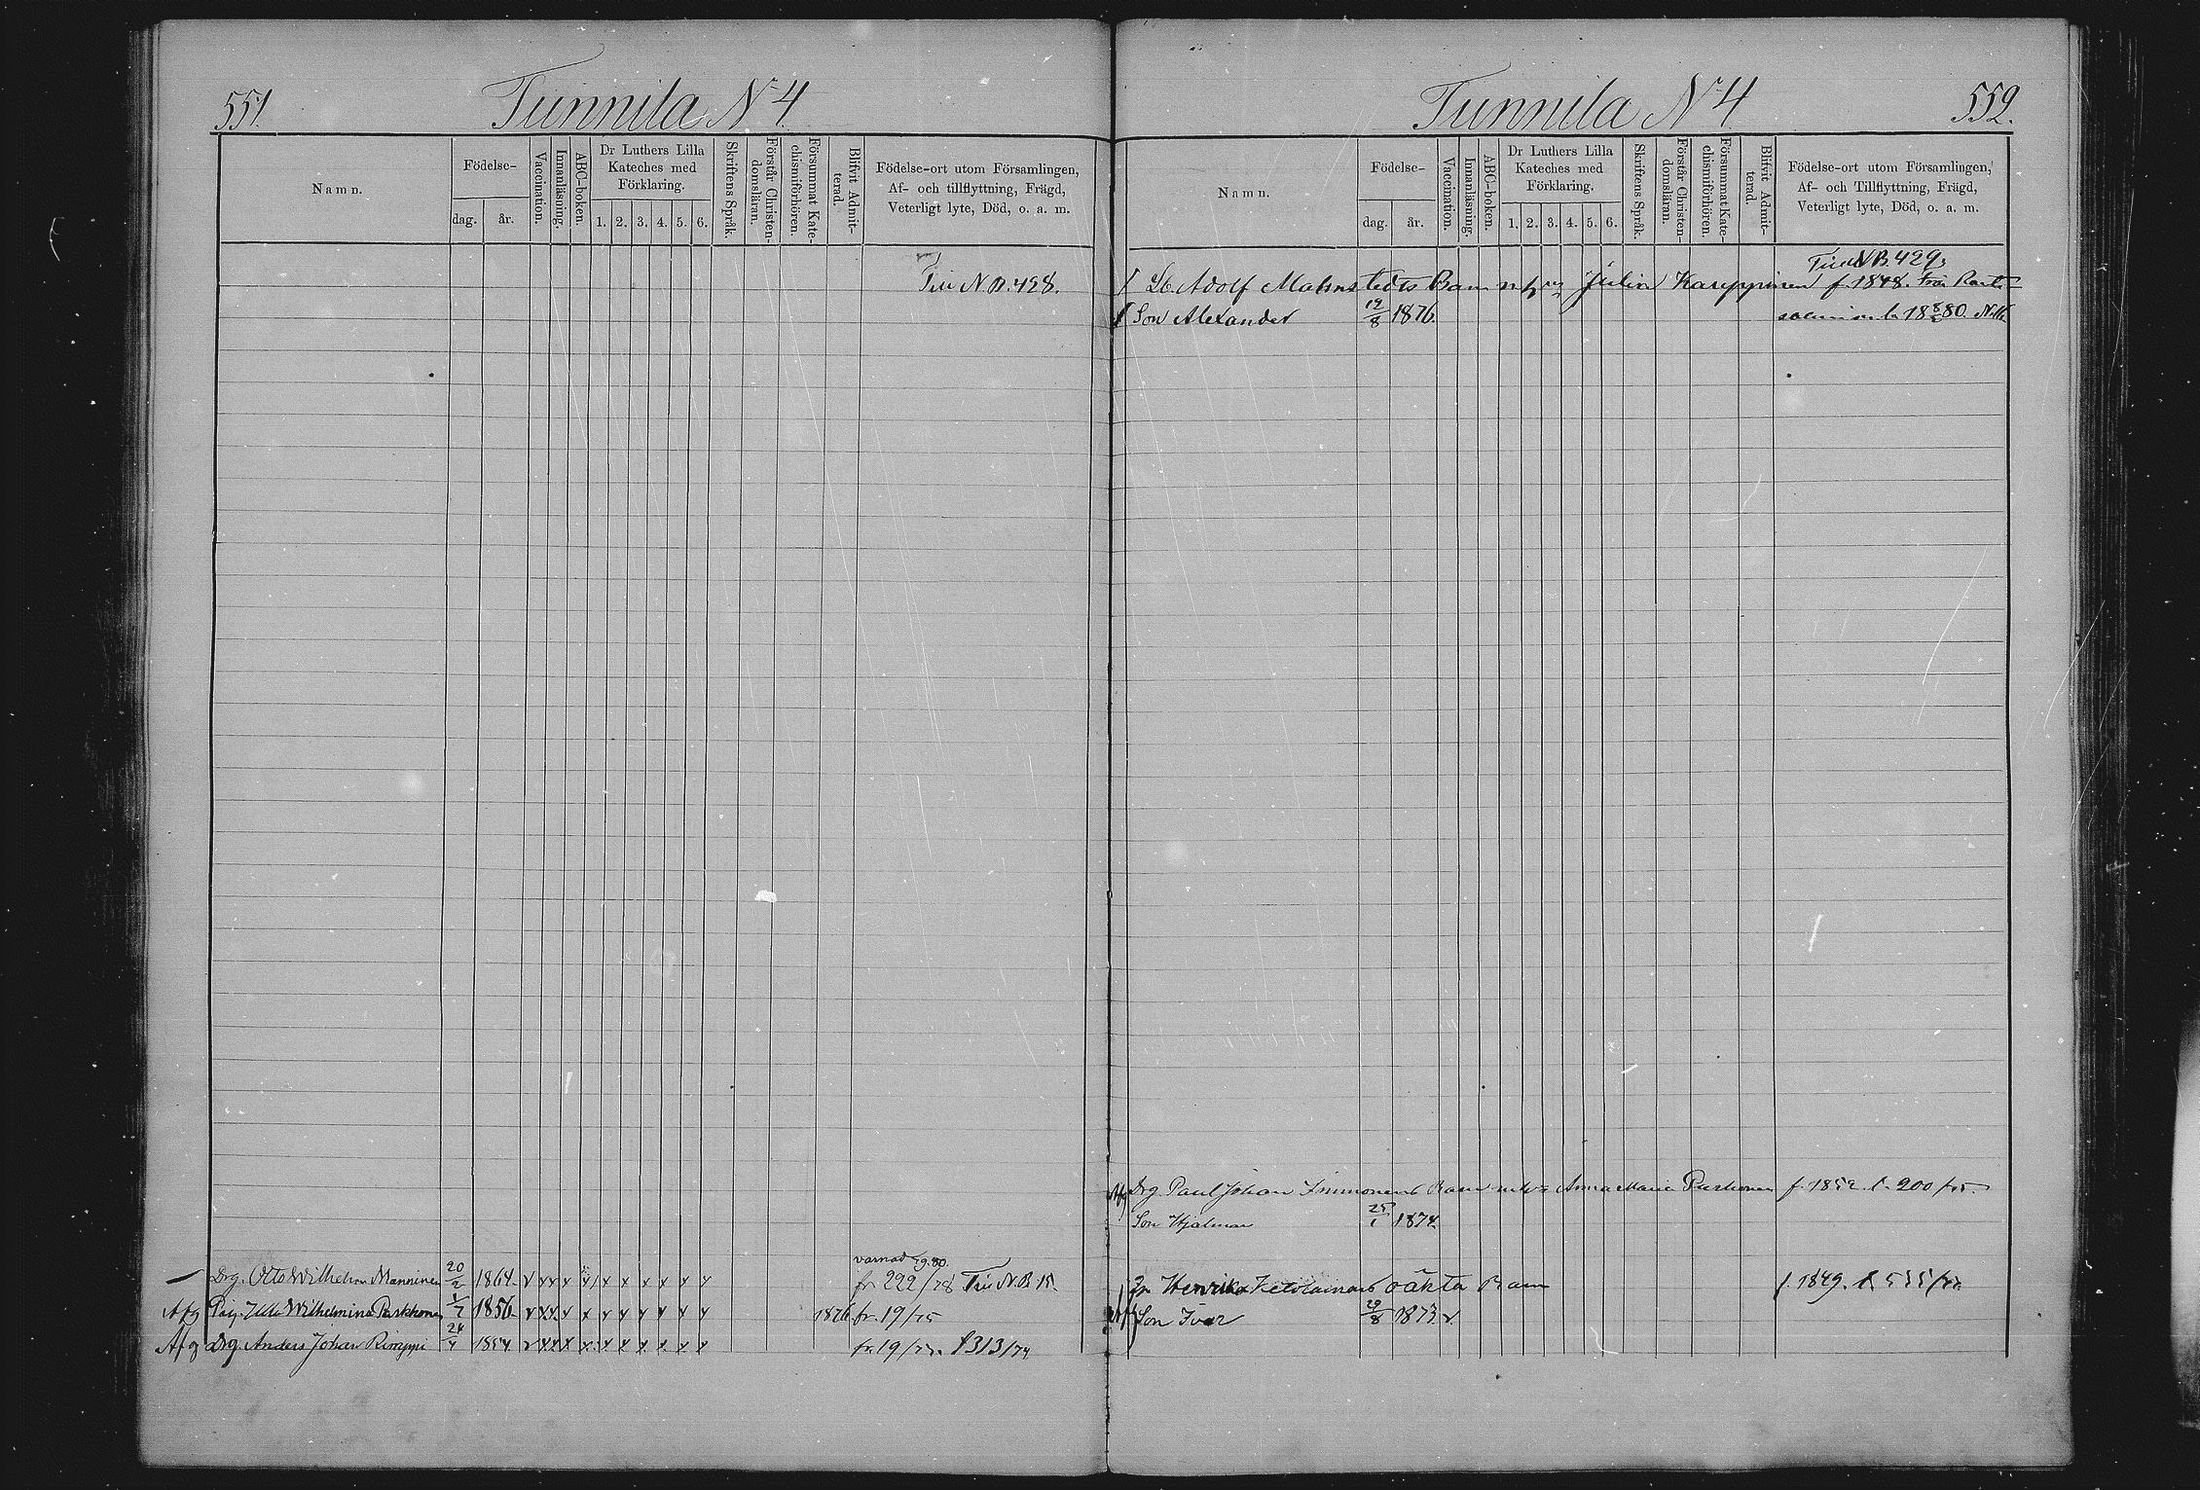 551.
Tunnila No 4
Namn.
Födelse-
dag.
år.
Vaccination.
Innanläsning.
ABC-boken.
Dr Luthers Lilla
Kateches med
Förklaring.
1. 2. 3. 4. 5. 6.
Skriftens Språk.
Förstår Christen-
domsläran.
Försummat Kate-
chismiförhören.
Blifvit Admit-
terad.
Födelse-ort utom Församlingen,
Af- och tillflyttning, Frägd,
Veterligt lyte, Död, o. a. m.
N.B. 428.
varnad 80.
Drg. Otto Wilhelm Manninen 20/2 1864 v xx x x x x x x x x fr 222/78 N.B. 15.
Afg Pig. Ulla Wilhelmina Paskhonen 1/7 1856 v xx x x x x x x x x 1876 fr. 19/75
Afg Drg. Anders Johan Rimppi 24/4 1854 v xx x x x x x x x x fr. 19/ 313/74
Tunnila No 4
552.
Namn.
Födelse-
dag.
år.
Vaccination.
Innanläsning.
ABC-boken.
Dr Luthers Lilla
Kateches med
Förklaring.
1. 2. 3. 4. 5. 6.
Skriftens Språk.
Förstår Christen-
domsläran.
Försummat Kate-
chismiförhören.
Blifvit Admit-
terad.
Födelse-ort utom Församlingen,
Af- och Tillflyttning, Frägd,
Veterligt lyte, Död, o. a. m.
N.B. 429
Adolf Malmstedts Barn Julia Karppinen f. 1848. från
Son Alexander 19/8 1876. 80
Afg Drg Paul Johan Immonens Barn Anna Maria f. 1852 200/
Son Hjalmar 25/1 1874
Henrika oäkta Barn f. 1849. 535/
Son Ivar 29/8 1873 v.